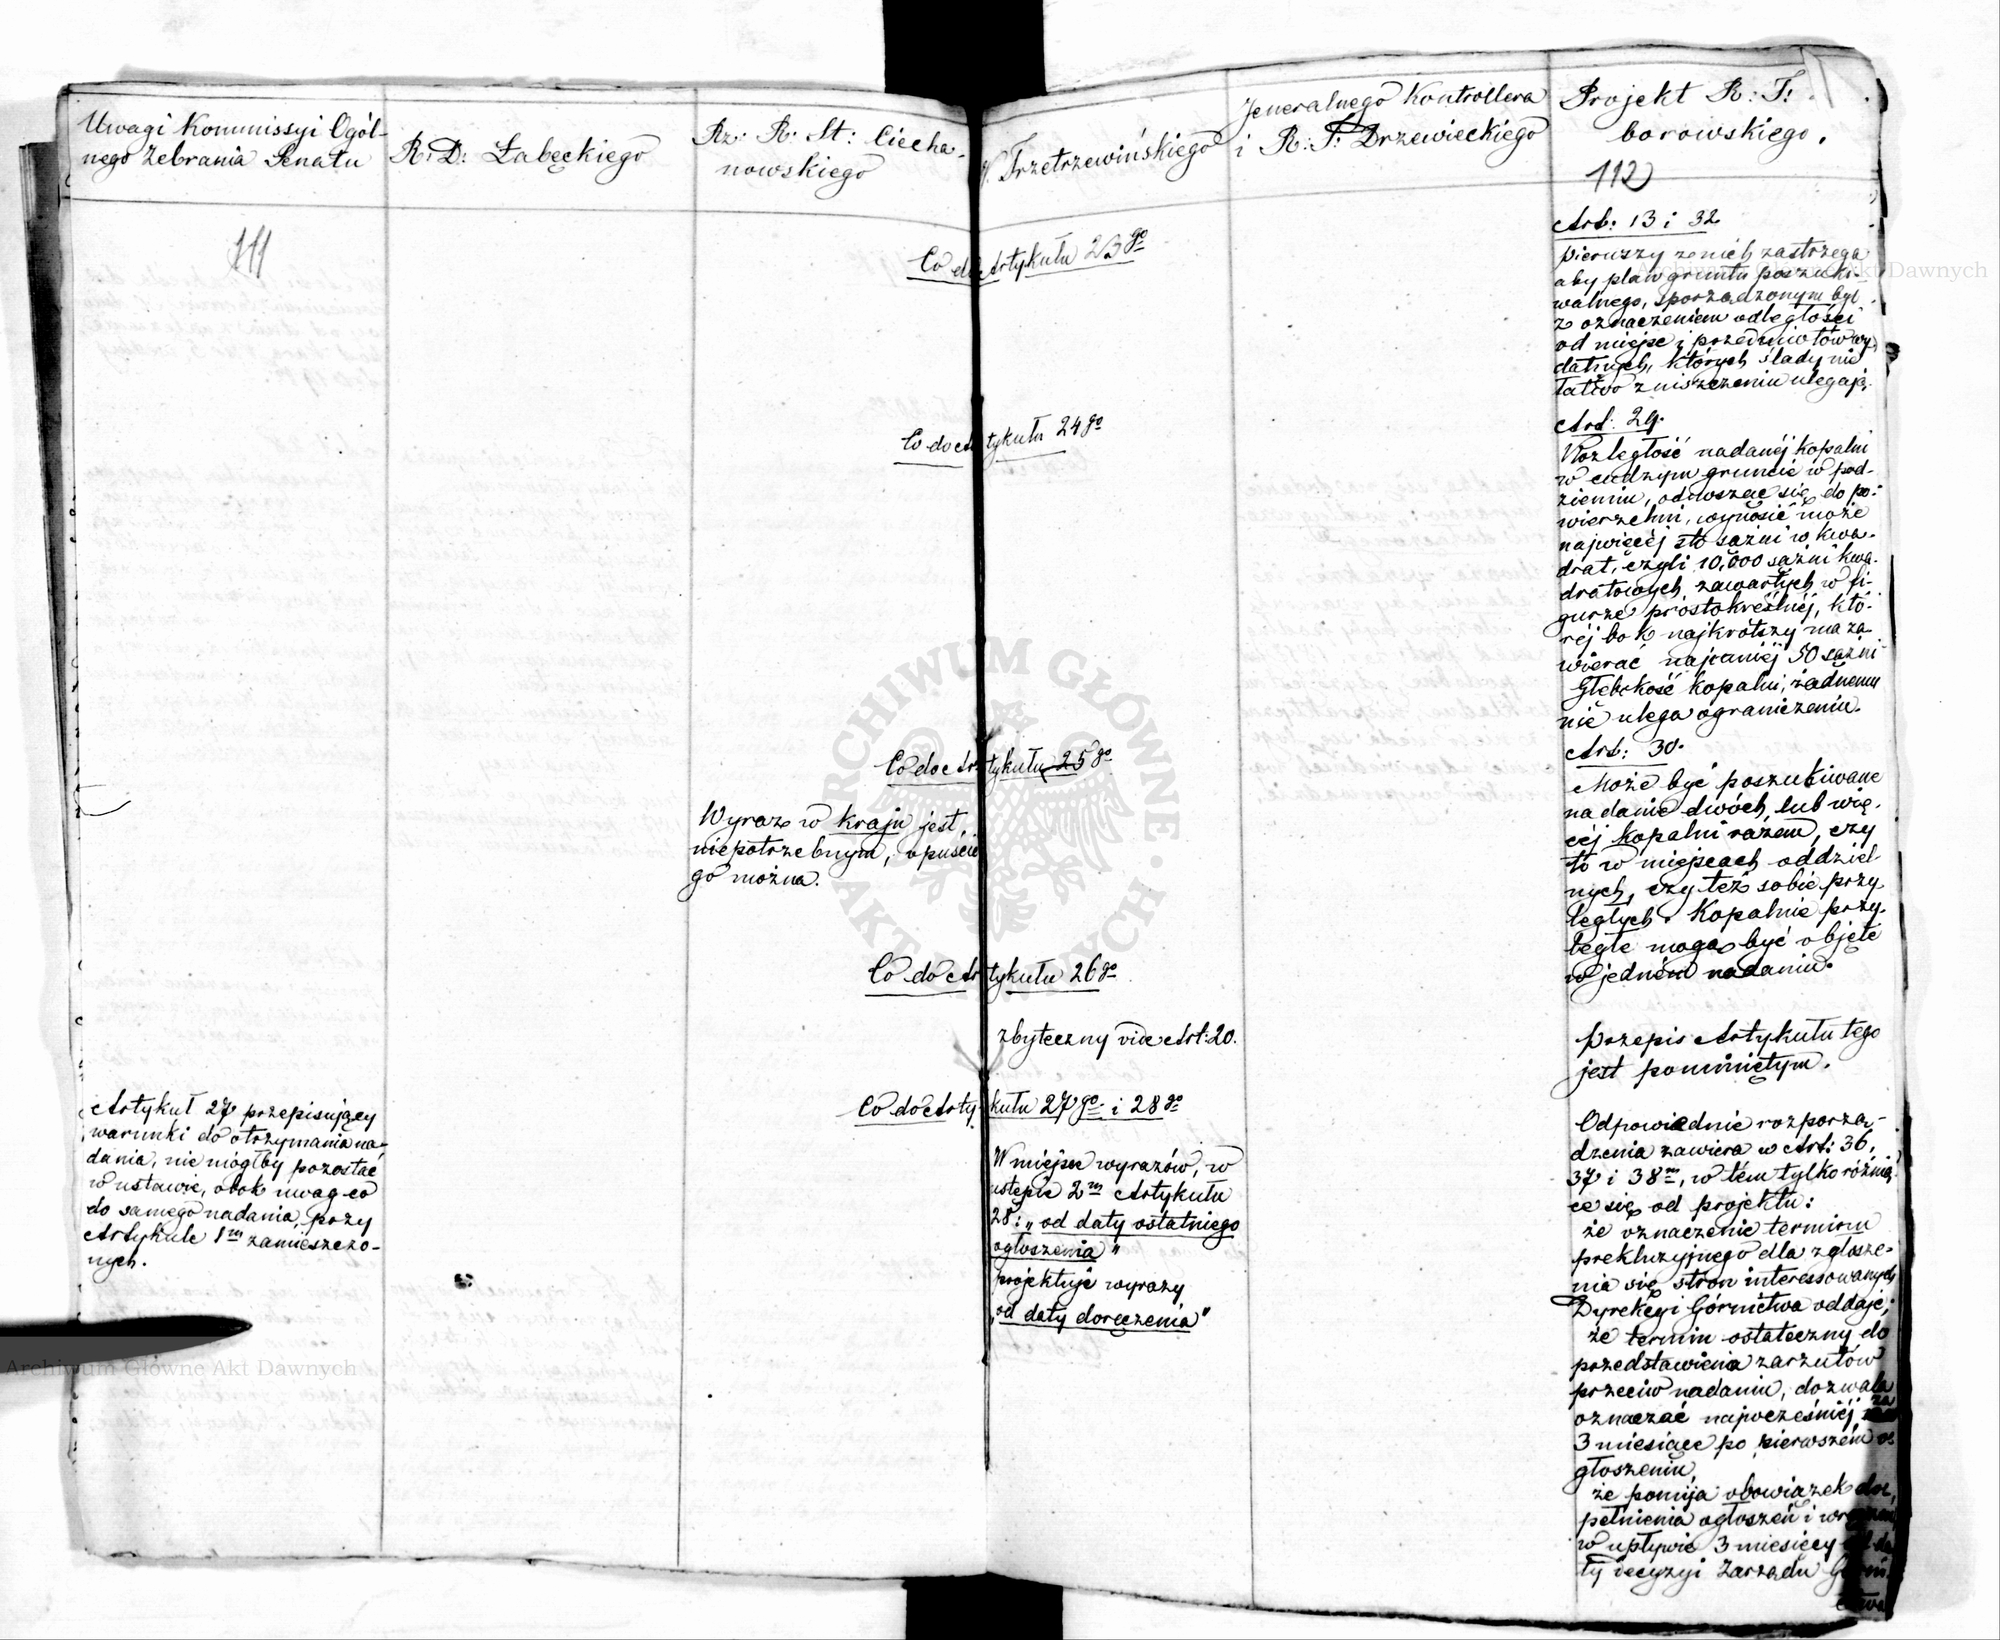 Uwagi Kommissyi Ogól-
nego Zebrania Senatu
R: D: Łabęckiego
Rz: R: St: Ciecha-
nowskiego
Trzetrzewińskiego
Jeneralnego Kontrollera
i R: T: Drzewieckiego
Projekt R: T:
borowskiego.
111
112
Co do Artykułu 23go
Co do Artykułu 24go
Co do Artykułu 25go
Wyraz w kraju jest
niepotrzebnym, opuścić
go można.
Co do Artykułu 26go
zbyteczny vide Art: 20.
Co do Artykułu 27go i 28go
Artykuł 27 przepisujący
warunki do otrzymania na-
dania, nie mógłby pozostać
w ustawie, obok uwag co
do samego nadania, przy
Artykule 1m zamieszczo-
nych.
W miejsce wyrazów, w
ustępie 2m Artykułu
28: „od daty ostatniego
ogłoszenia"
projektuje wyrazy
„od daty doręczenia"
Art: 13 i 32
pierwszy z nich zastrzega
aby plan gruntu poszuki-
walnego, sporządzonym był
z oznaczeniem odległości
od miejsc i przedmiotów wy-
datnych, których ślady nie
łatwo zniszczeniu ulegają.
Art: 29.
Rozległość nadanéj kopalni
w cudzym gruncie w pod-
ziemiu, odnosząc się do po-
wierzchni, wynosić może
najwięcéj sto sążni w kwa-
drat, czyli 10,000 sążni kwa-
dratowych zawartych w fi-
gurze prostokreślnéj, któ-
réj bok najkrótszy ma za-
wierać najmniéj 50 sążni
Głębokość kopalni, żadnemu
nie ulega ograniczeniu.
Art: 30.
Może być poszukiwane
nadanie dwóch, lub wię-
céj kopalni razem, czy
to w miejscach oddziel-
nych, czy też sobie przy-
ległych. Kopalnie przy-
ległe mogą być objęte
w jedném nadaniu.
przepis Artykułu tego
jest pominiętym.
Odpowiednie rozporzą-
dzenia zawiera w Art: 36,
37 i 38m, w tém tylko różnią-
ce się od projektu:
że oznaczenie terminu
prekluzyjnego dla zgłosze-
nia się stron interessowanych
Dyrekcyi Górnictwa oddaje;
że termin ostateczny do
przedstawienia zarzutów
przeciw nadaniu, dozwala
oznaczać najwcześniéj za
3 miesiące po pierwszém o-
głoszeniu,
że pomija obowiązek do-
pełnienia ogłoszeń i
w upływie 3 miesięcy od da-
ty decyzyi Zarządu Górni-
ctwa
Archiwum Główne Akt Dawnych